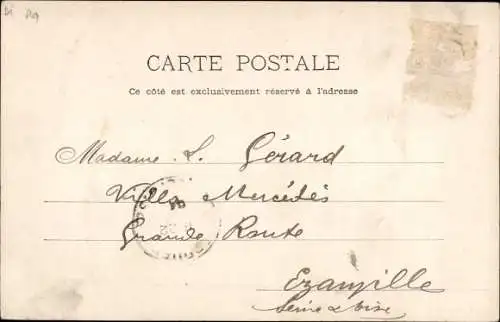 CARTE POSTALE
Ce côté est exclusivement réservé à l'adresse
Madame L. Gérard
Villa Mercédès
Grande Route
Ezanville
Seine & Oise